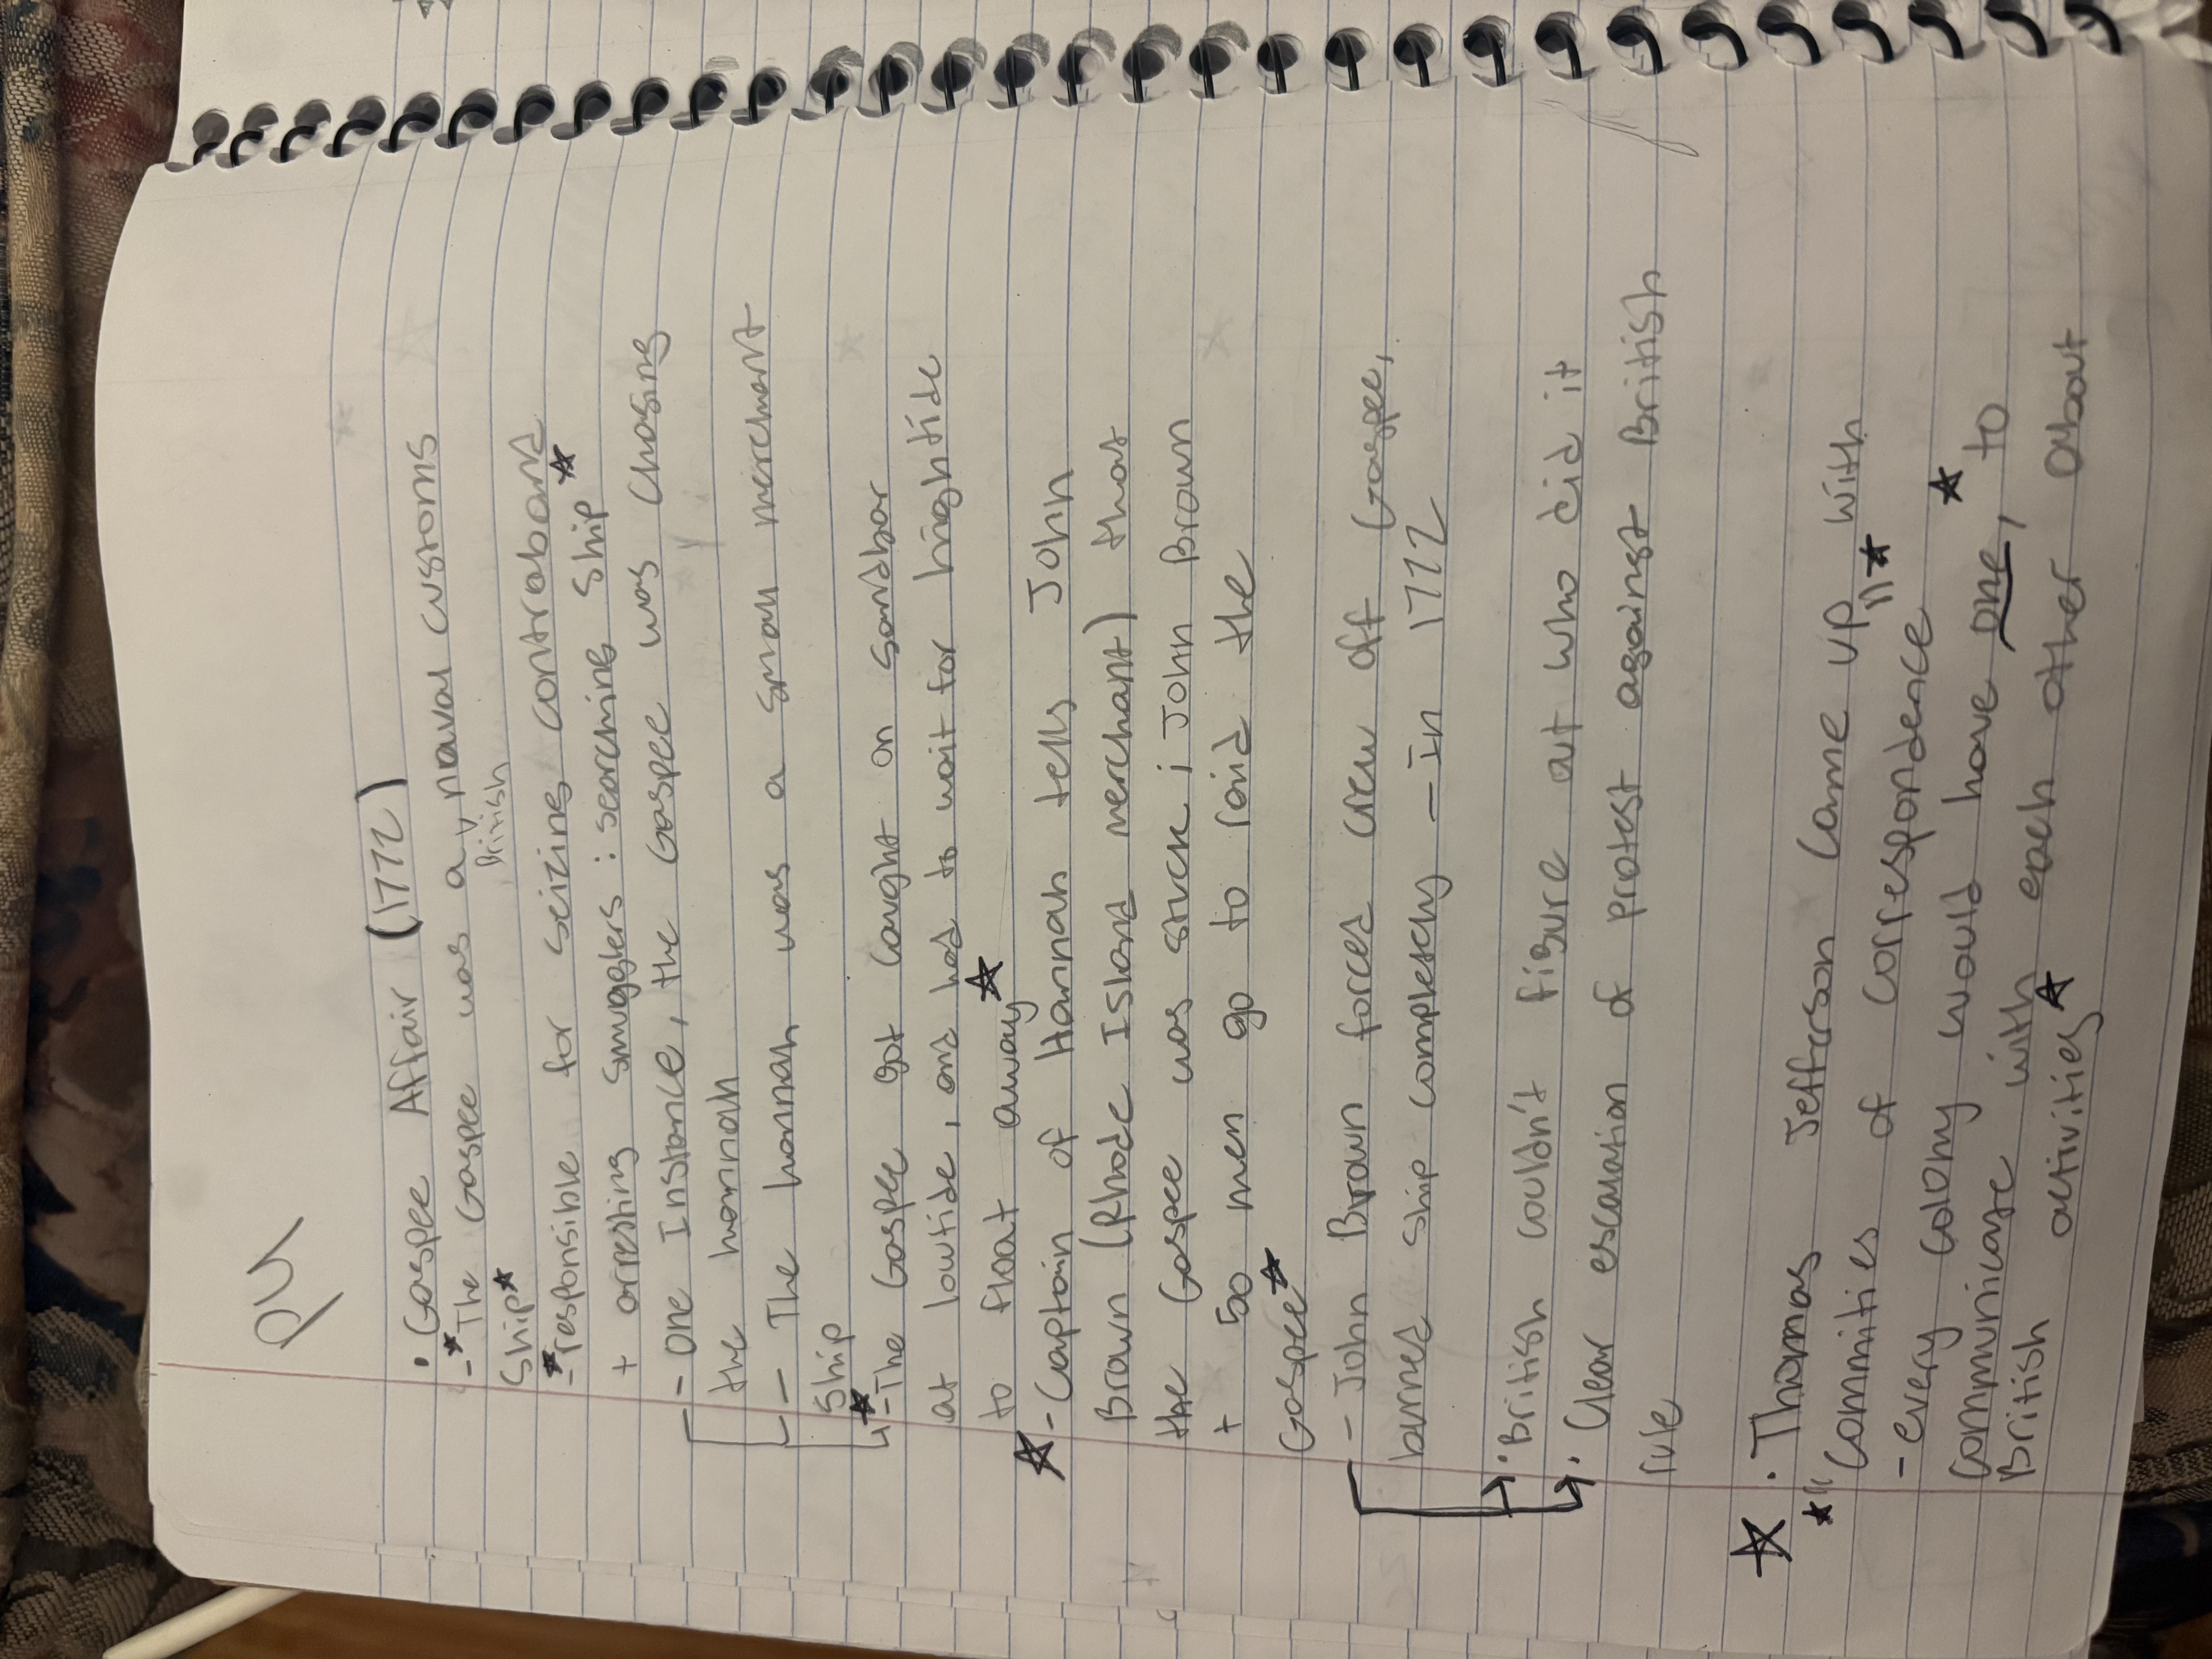 P4
• Gaspee Affair (1772)
- The Gaspee was a British naval customs
Ship
- responsible for seizing contraband
+ arresting smugglers: searching ship
- One Instance, the Gaspee was chasing
the hannah
- The hannah was a small merchant
Ship
- The Gaspee got caught on sandbar
at lowtide, and had to wait for hightide
to float away
- Captain of Hannah tells John
Brown (Rhode Island merchant) that
the Gaspee was stuck; John Brown
+ 50 men go to raid the
Gaspee
- John Brown forced crew off Gaspee,
burned ship completely - In 1772
• British couldn't figure out who did it
• Clear escalation of protest against British
rule
• Thomas Jefferson came up with
"Committies of correspondence"
- every colony would have one, to
communicate with each other about
British activities